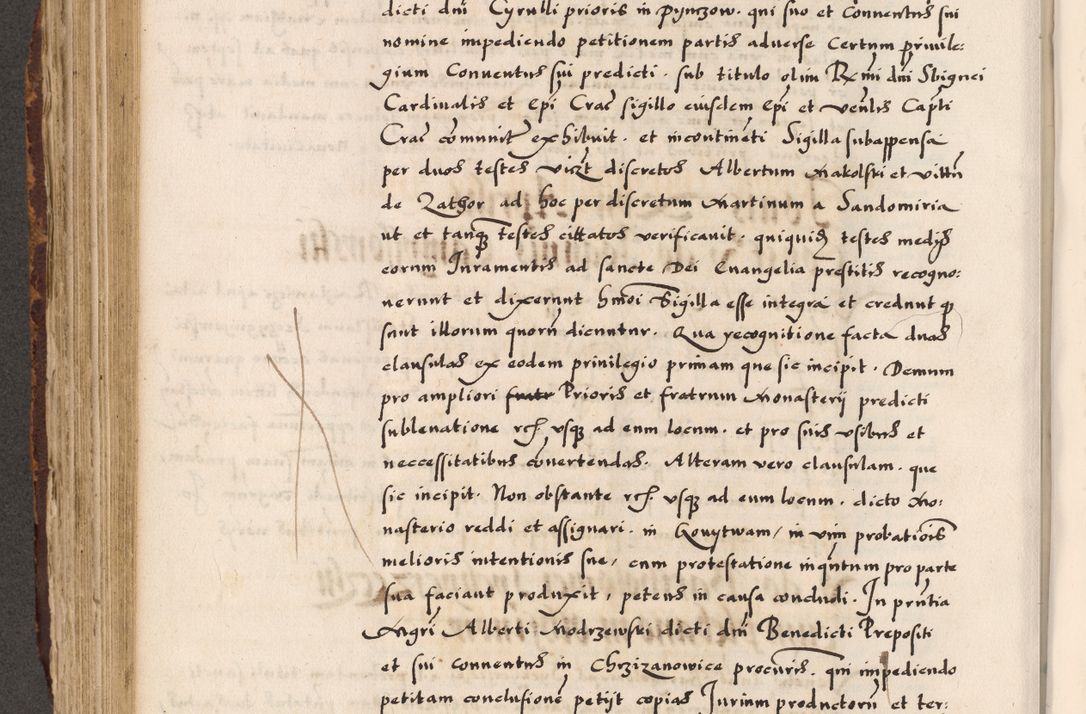 dicti dni Cyrulli prioris in Pynczow. qui suo et Conventus sui
nomine impediendo petitionem partis adverse Certum privile:
gium Conventus sui predicti. sub titulo olim Rmi dni Sbignei
Cardinalis et Epi Crac sigillo eiusdem Epi et venlis Capti
Crac comunit exhibuit. et incontineti Sigilla subappensa
per duos testes viczt discretos Albertum Makolski et vittn
de Zathor ad hoc per discretum Martinum a Sandomiria
ut et tanq testes cittatos verificavit. quiquid testes medijs
eorum Iuramentis ad sancte Dei Evangelia prestitis recogno:
verunt et dixerunt hmoi Sigilla esse integra et credunt q
sunt illorum quoru dicuntur. Qua recognitione facta duas
clausulas ex eodem privilegio primam que sic incipit. Demum
pro ampliori Prioris et fratrum Monasterij predicti
sublevatione rc. usq ad eum locum. et pro suis usibus et
neccessitatibus covertendas. Alteram vero clausulam. que
sic incipit. Non obstante rc. usq ad eum locum. dicto Mo:
nasterio reddi et assignari. in Konytwam, in vim probatiois
melioris intentionis sue, cum protestatione inqntum pro parte
sua faciant produxit, petens in causa concludi. In prntia
Mgri Alberti Modrzewski dicti dni Benedicti Prepositi
et sui conventus in Chrzizanowice procuris. qui impediendo
petitam conclusione petijt copias Iurium productoru et ter: